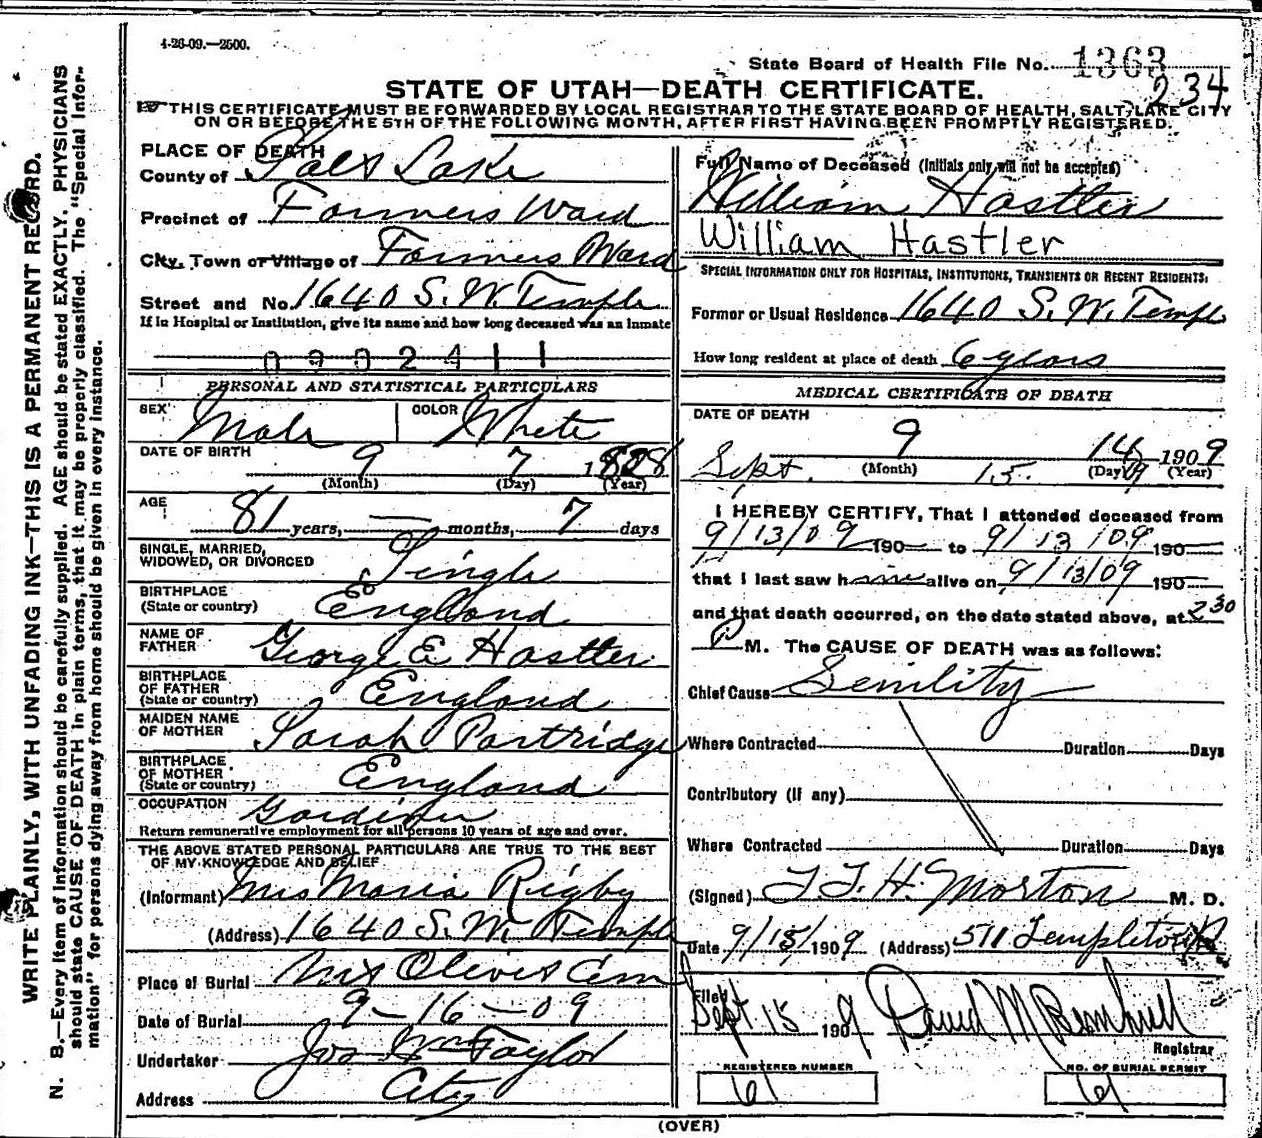 4-26-09.—2500.
State Board of Health File No. 1363
234
STATE OF UTAH—DEATH CERTIFICATE.
THIS CERTIFICATE MUST BE FORWARDED BY LOCAL REGISTRAR TO THE STATE BOARD OF HEALTH, SALT LAKE CITY
ON OR BEFORE THE 5TH OF THE FOLLOWING MONTH, AFTER FIRST HAVING BEEN PROMPTLY REGISTERED.
PLACE OF DEATH
County of Salt Lake
Precinct of Farmers Ward
City, Town or Village of Farmers Ward
Street and No. 1640 S. W. Temple
If in Hospital or Institution, give its name and how long deceased was an inmate
0902411
PERSONAL AND STATISTICAL PARTICULARS
SEX Male COLOR White
DATE OF BIRTH 9 7 1828
(Month) (Day) (Year)
AGE 81 years, — months, 7 days
SINGLE, MARRIED,
WIDOWED, OR DIVORCED Single
BIRTHPLACE
(State or country) England
NAME OF
FATHER George E Hastler
BIRTHPLACE
OF FATHER
(State or country) England
MAIDEN NAME
OF MOTHER Sarah Partridge
BIRTHPLACE
OF MOTHER
(State or country) England
OCCUPATION Gardiner
Return remunerative employment for all persons 10 years of age and over.
THE ABOVE STATED PERSONAL PARTICULARS ARE TRUE TO THE BEST
OF MY KNOWLEDGE AND BELIEF
(Informant) Mrs Maria Rigby
(Address) 1640 S. W. Temple
Place of Burial Mt Olivet Cem
Date of Burial 9-16-09
Undertaker Jos Wm Taylor
Address City
Full Name of Deceased (Initials only will not be accepted)
William Hastler
William Hastler
SPECIAL INFORMATION ONLY FOR HOSPITALS, INSTITUTIONS, TRANSIENTS OR RECENT RESIDENTS:
Former or Usual Residence 1640 S. W. Templ
How long resident at place of death 6 years
MEDICAL CERTIFICATE OF DEATH
DATE OF DEATH
9 14 1909
Sept. (Month) 15. (Day) 09 (Year)
I HEREBY CERTIFY, That I attended deceased from
9/13/09 190— to 9/13/09 190—
that I last saw h alive on 9/13/09 190—
and that death occurred, on the date stated above, at 2 30
P M. The CAUSE OF DEATH was as follows:
Chief Cause Senility
Where Contracted Duration Days
Contributory (if any)
Where Contracted Duration Days
(Signed) T. F. H. Morton M. D.
Date 9/15/1909 (Address) 511 Templeton
Filed Sept 15 1909 David M
Registrar
REGISTERED NUMBER NO. OF BURIAL PERMIT
61 61
(OVER)
WRITE PLAINLY, WITH UNFADING INK—THIS IS A PERMANENT RECORD.
N. B.—Every item of information should be carefully supplied. AGE should be stated EXACTLY. PHYSICIANS
should state CAUSE OF DEATH in plain terms, that it may be properly classified. The "Special Infor-
mation" for persons dying away from home should be given in every instance.